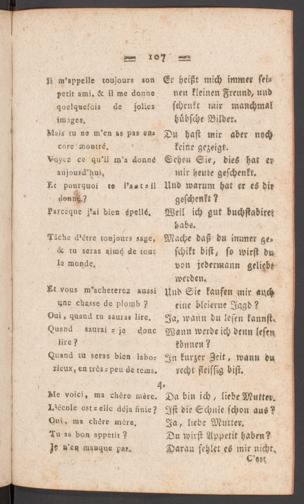 107
Il m'appelle toujours son
petit ami, & il me donne
quelquefois de jolies
images.
Mais tu ne m'en as pas en-
core montré.
Voyez ce qu'il m'a donné
aujourd'hui.
Et pourquoi te l'a-t-il
donné?
Parceque j'ai bien épellé.
Tâche d'être toujours sage,
& tu seras aimé de tout
le monde.
Et vous m'acheterez aussi
une chasse de plomb?
Oui, quand tu sauras lire.
Quand saurai-je donc
lire?
Quand tu seras bien labo-
rieux, en très-peu de tems.
Er heißt mich immer sei-
nen kleinen Freund, und
schenkt mir manchmal
hübsche Bilder.
Du hast mir aber noch
keine gezeigt.
Sehen Sie, dies hat er
mir heute geschenkt.
Und warum hat er es dir
geschenkt?
Weil ich gut buchstabiret
habe.
Mache daß du immer ge-
schikt bist, so wirst du
von jedermann geliebt
werden.
Und Sie kaufen mir auch
eine bleierne Jagd?
Ja, wann du lesen kannst.
Wann werde ich denn lesen
können?
In kurzer Zeit, wann du
recht fleissig bist.
4.
Me voici, ma chère mère.
L'école est-elle déja finie?
Oui, ma chère mère.
Tu as bon appetit?
Je n'en manque pas.
Da bin ich, liebe Mutter.
Ist die Schule schon aus?
Ja, liebe Mutter.
Du wirst Appetit haben?
Daran fehlet es mir nicht.
C'est